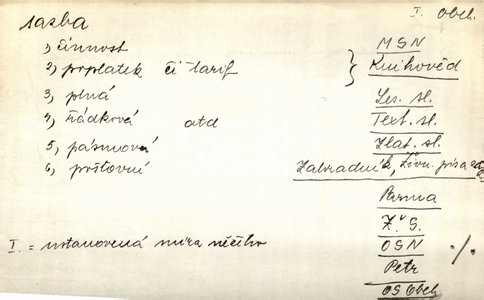 I. Obch.
sazba
1, činnost MSN
2, poplatek či tarif Knihověd
3, plná Les. sl.
4, řádková atd Text. sl.
5, pásmová Zlat. sl.
6, poštovní Zahradník, Živn.
Parma
Z. S.
I. = ustanovená míra něčeho OSN ·/·
Petr
OS Obch